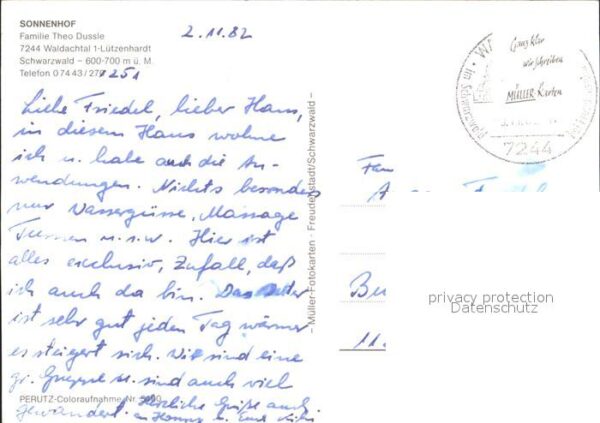 SONNENHOF
Familie Theo Dussle
7244 Waldachtal 1-Lützenhardt
Schwarzwald – 600-700 m ü. M.
Telefon 07443/27
1251
2.11.82
Liebe Friedel, lieber Hans,
in diesem Haus wohne
ich u. habe auch die An-
wendungen. Nichts besonders
nur Wassergüsse, Massage
Turnen u.s.w. Hier ist
alles exclusiv, Zufall, daß
ich auch da bin. Das
ist sehr gut jeden Tag wärmer
es steigert sich. Wir sind eine
gr. Gruppe u. sind auch viel
gewandert. Herzliche Grüße auch
an u. Eure
PERUTZ-Coloraufnahme Nr.
– Müller-Fotokarten · Freudenstadt/Schwarzwald –
Ganz klar
wir schreiben
MÜLLER-Karten
7244
Fam
Bu
11.
privacy protection
Datenschutz